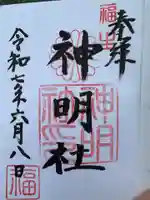 奉拝
神明社
令和七年六月八日
神明
福